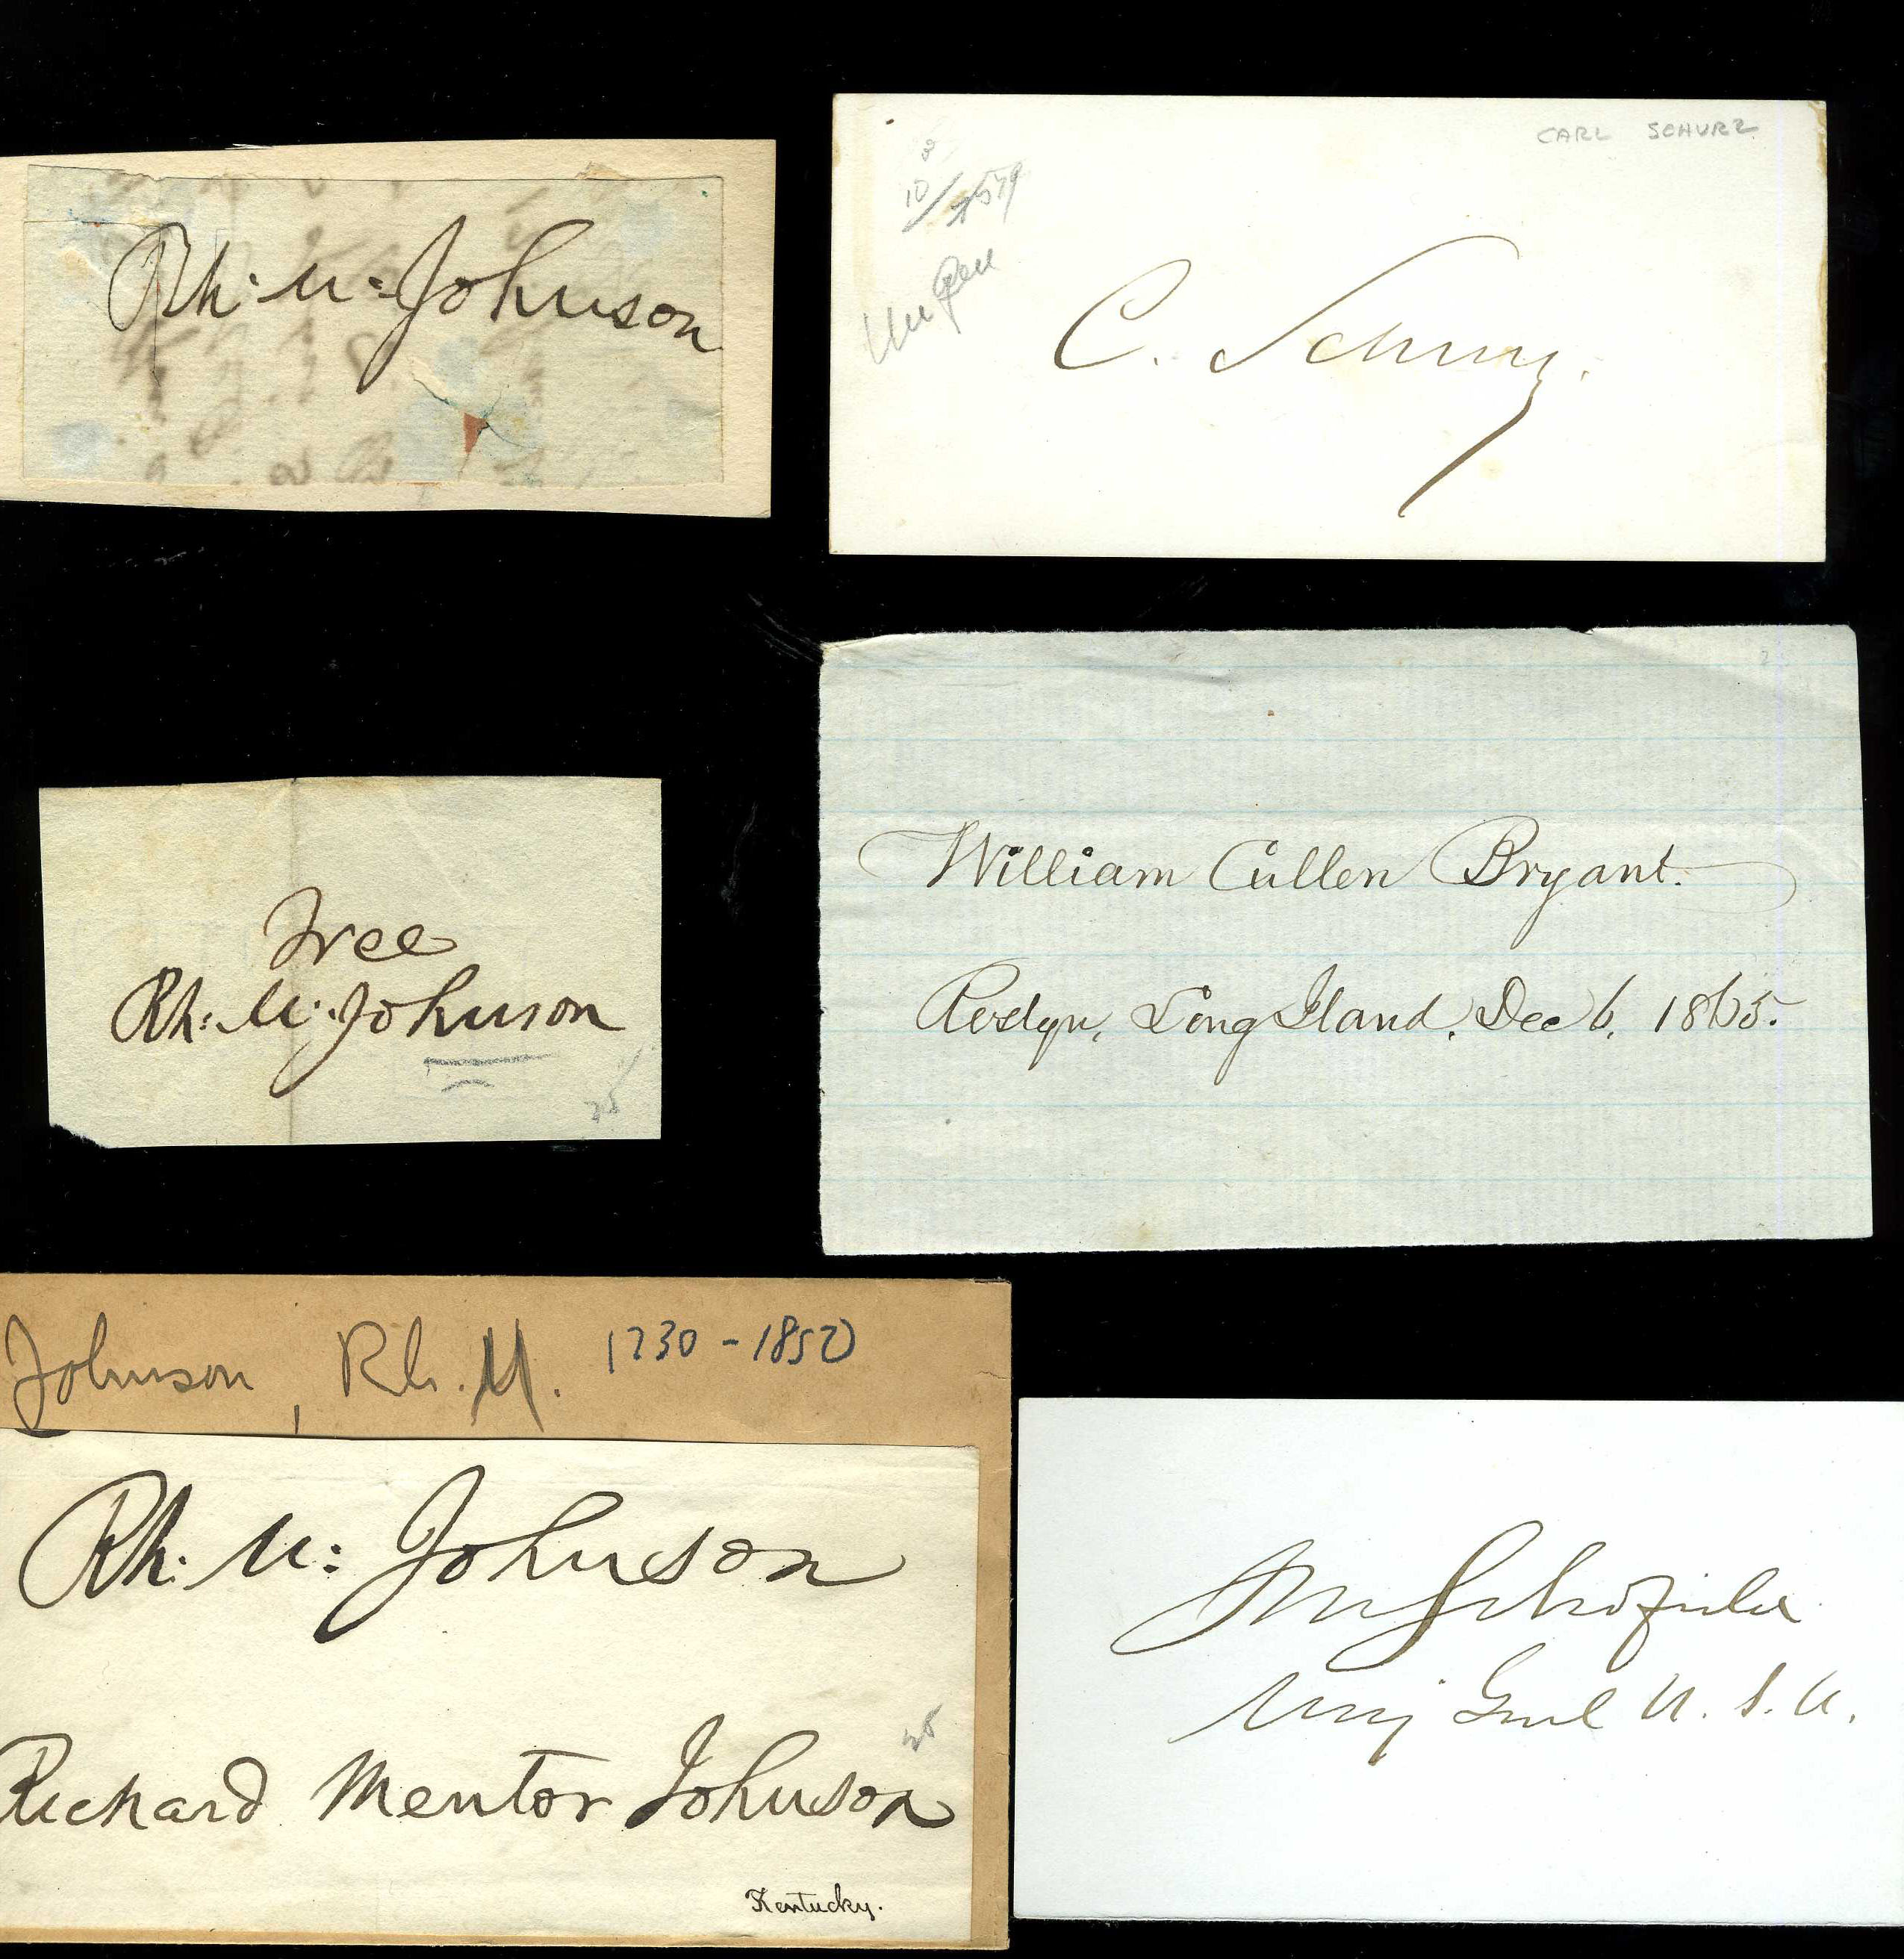 Rh: M: Johnson
CARL SCHURZ
C. Schurz.
Free
Rh: M: Johnson
25
William Cullen Bryant.
Roslyn, Long Island, Dec 6, 1865.
Johnson, Rh. M. 1730-1850
Rh: M: Johnson
25
Richard Mentor Johnson
Kentucky.
JM Schofield
Maj Genl U. S. A.